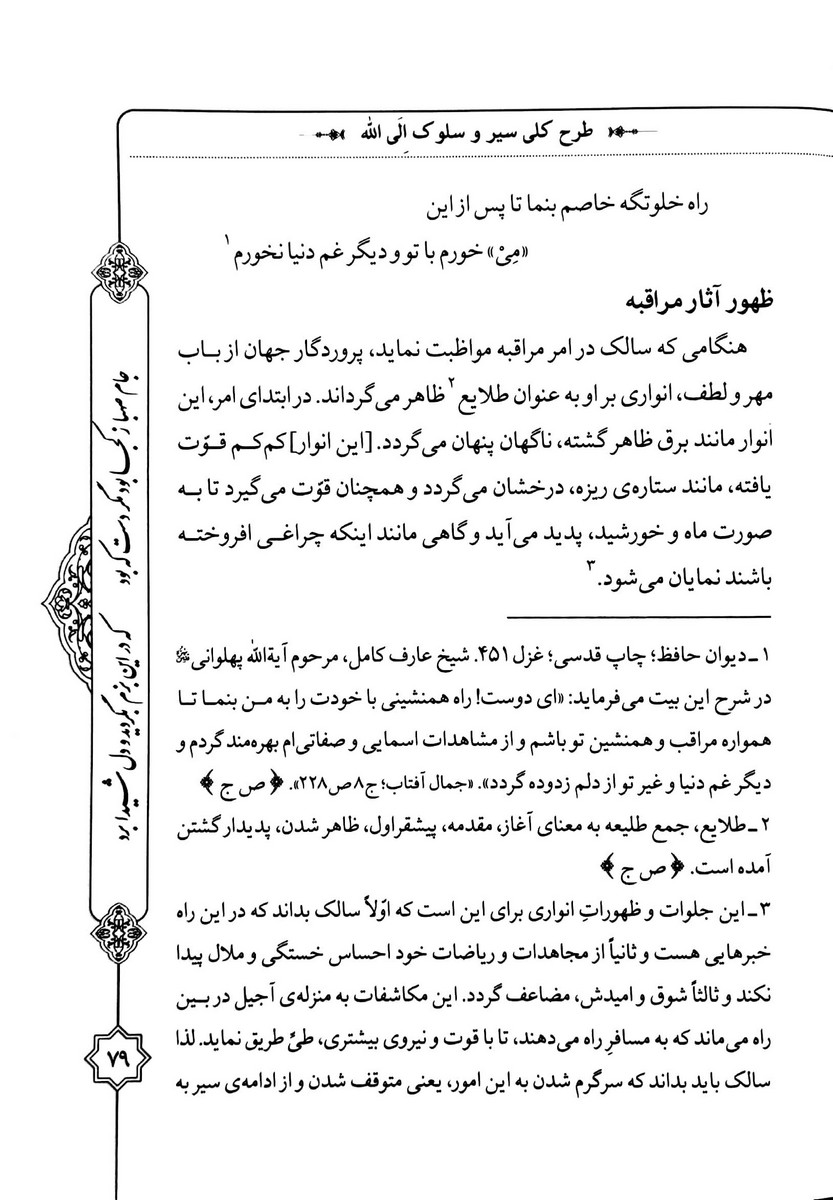 طرح کلی سیر و سلوک اِلَی الله
راه خلوتگه خاصم بنما تا پس از این
«مِیْ» خورم با تو و دیگر غم دنیا نخورم۱
ظهور آثار مراقبه
هنگامی که سالک در امر مراقبه مواظبت نماید، پروردگار جهان از باب
مهر و لطف، انواری بر او به عنوان طلایع۲ ظاهر می‌گرداند. در ابتدای امر، این
انوار مانند برق ظاهر گشته، ناگهان پنهان می‌گردد. [این انوار] کم‌کم قوّت
یافته، مانند ستاره‌ی ریزه، درخشان می‌گردد و همچنان قوّت می‌گیرد تا به
صورت ماه و خورشید، پدید می‌آید و گاهی مانند اینکه چراغی افروخته
باشند نمایان می‌شود.۳
۱ـ دیوان حافظ؛ چاپ قدسی؛ غزل ۴۵۱. شیخ عارف کامل، مرحوم آیةالله پهلوانی
در شرح این بیت می‌فرماید: «ای دوست! راه همنشینی با خودت را به من بنما تا
همواره مراقب و همنشین تو باشم و از مشاهدات اسمایی و صفاتی‌ام بهره‌مند گردم و
دیگر غم دنیا و غیر تو از دلم زدوده گردد». «جمال آفتاب؛ ج۸ ص۲۲۸». ﴿ ص ج ﴾
۲ـ طلایع، جمع طلیعه به معنای آغاز، مقدمه، پیشقراول، ظاهر شدن، پدیدار گشتن
آمده است. ﴿ ص ج ﴾
۳ـ این جلوات و ظهوراتِ انواری برای این است که اوّلاً سالک بداند که در این راه
خبرهایی هست و ثانیاً از مجاهدات و ریاضات خود احساس خستگی و ملال پیدا
نکند و ثالثاً شوق و امیدش، مضاعف گردد. این مکاشفات به منزله‌ی آجیل در بین
راه می‌ماند که به مسافرِ راه می‌دهند، تا با قوت و نیروی بیشتری، طیِّ طریق نماید. لذا
سالک باید بداند که سرگرم شدن به این امور، یعنی متوقف شدن و از ادامه‌ی سیر به
جام صهبا ز کجا بود مگر دست که بود
که در این بزم بگردید و دل شیدا برد
۷۹